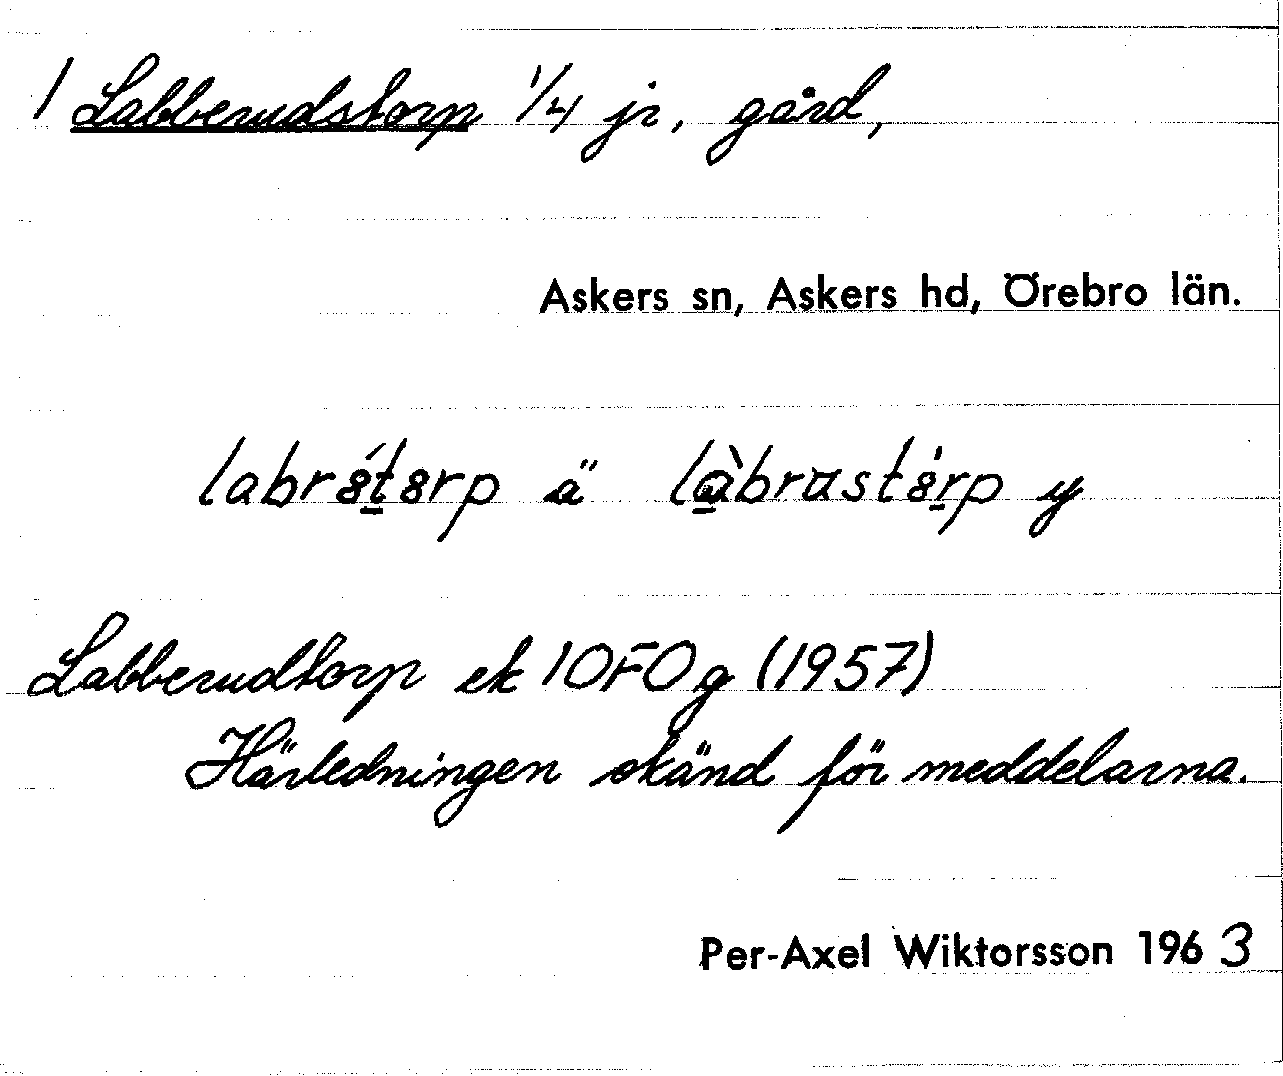 1 Labberudstorp 1/4 jr, gård,
Askers sn, Askers hd, Örebro län.
labrótorp ä làbrastórp y
Labberudtorp ek 10F0g (1957)
Härledningen okänd för meddelarna.
Per-Axel Wiktorsson 1963